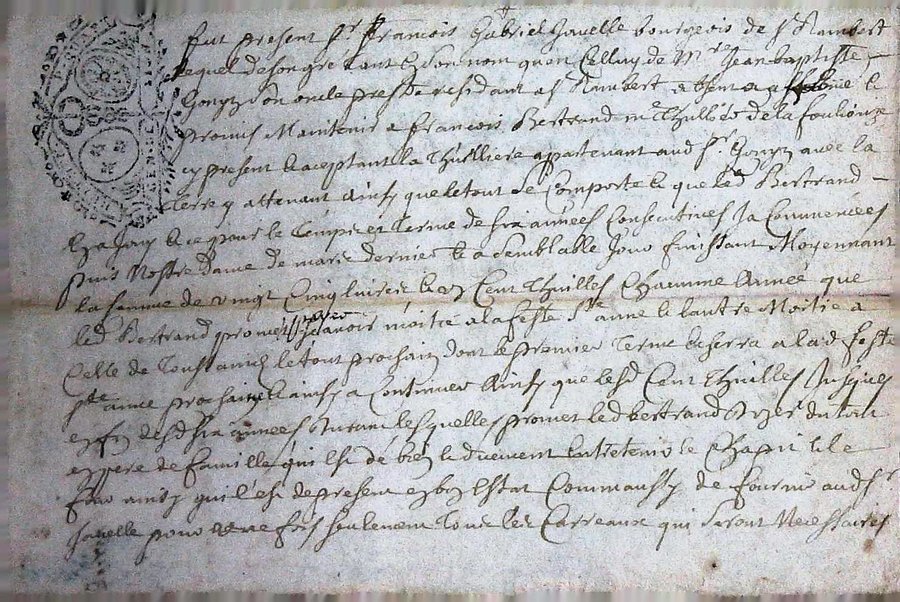 fut present Sr francois Gabriel Jouelle bourgeois de St Rambert
lequel de son gré tant a son nom qu'en Celluy de Mre Jean baptiste
Gonyn son oncle presbre residant a St Rambert a
promis Maintenir a francois Bertrand me Thuillier de la fouliouze
cy present & aceptant la Thuilliere apartenant aud Sr Gonyn avec la
terre y attenant Ainsy que le tout Se Comporte & que led Bertrand
& ce pour le temps et terme de six années Consecutives Ja Commencees
puis Nostre dame de mars dernier & a semblable Jour finissant Moyennant
la somme de vingt Cinq livres & un Cent Thuilles Chacunne Année que
led Bertrand promet payer scavoir moitié a la feste Ste anne & l'autre Moitié a
Celle de Toussaincts le tout prochain dont le premier terme Escherra a lad feste
Ste anne prochaine & ainsy a Continuer Ainsy que lesd Cent Thuilles Jusques
en fin desd six années Durant lesquelles promet led bertrand Vzer du tout
en pere de famille qui Est de bien & duement Entretenir le Chapit & le
four ainsy qu'il est de present en bon Estat Comm'aussy de fournir aud Sr
Jouelle pour une fois seulement Tous les Carreaux qui Seront Necessaires